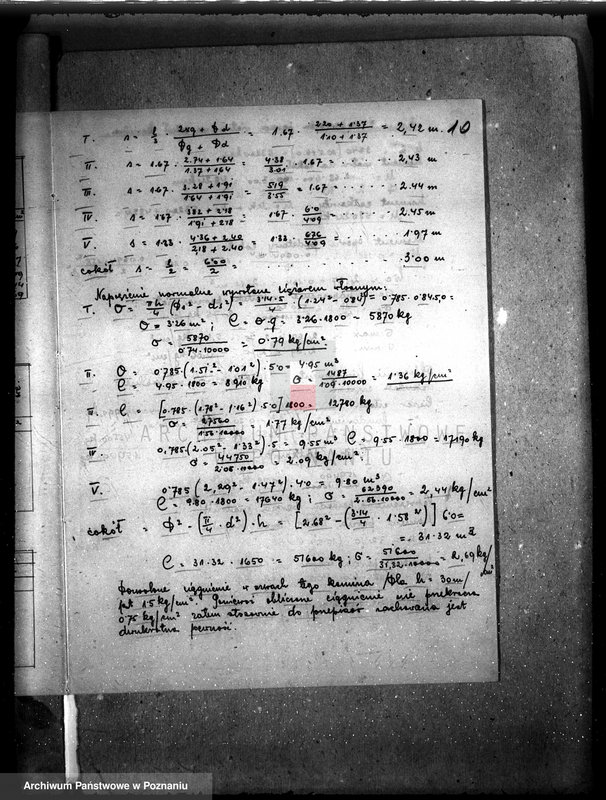 10
I. s = h/3 · (2φg + φd)/(φg + φd) = 1.67 · (2.20 + 1.37)/(1.10 + 1.37) = 2,42 m
II. s = 1.67 · (2.74 + 1.64)/(1.37 + 1.64) = 4.38/3.01 · 1.67 = 2,43 m
III. s = 1.67 · (3.28 + 1.91)/(1.64 + 1.91) = 519/3.55 = 1.67 = 2.44 m
IV. s = 1.67 · (382 + 2.18)/(1.91 + 2.18) = 1.67 · 6.0/4.09 = 2.45 m
V. s = 1.33 · (4.36 + 2.40)/(2.18 + 2.40) = 1.33 · 676/ = 1.97 m
cokół s = h/2 = 6.00/2 = 3.00 m
Naprężenie normalne wywołane ciężarem własnym:
I. = πh/4 = 3.14.5/4 · (1.24² - = 0.785 · 0.845,0 =
= 3.26 m³; G = 3.26 · 1800 ~ 5870 kg
σ = 5870/0.74.10000 = 0.79 kg/cm²
II. = 0.785 · (1.51² · 1.01²) · 5.0 = 4.95 m³
G = 4.95 · 1800 = 8910 kg σ = 1487/1.09.10000 = 1.36 kg/cm²
III. G = [0.785 · (1.78² - 1.16²) · 5.0] 1800 = 12780 kg
σ = 27560/1.56.10000 = 1.77 kg/cm²
IV 0,785 · (2.05² · 1.33²) · 5 = 9.55 m³ G = 9.55 · 1800 = 17190 kg
σ = 44750/ = 2.09 kg/cm²
V. 0.785 (2,29² - 1.47²) · 4.0 = 9.80 m³
G = 9.80 · 1800 = 17640 kg; σ = 62390/2.56.10000 = 2,44 kg/cm²
cokół = φ² - (π/4 · d²) · h = [2.68² - (3.14/4 · 1.58²)] 6.0 =
= 31.32 m³
G = 31.32 · 1650 = 51600 kg; σ = 51600/31,32.10000 = 2,69 kg/cm²
Dozwolone ciągnienie w murach tego komina /dla h = 30 m/
jest 1.5 kg/cm². Ponieważ obliczone ciągnienie nie przekracza
0.75 kg/cm² zatem stosownie do przepisów zachowana jest
dwukrotna pewność.
ARCHIWUM PAŃSTWOWE
W POZNANIU
Archiwum Państwowe w Poznaniu